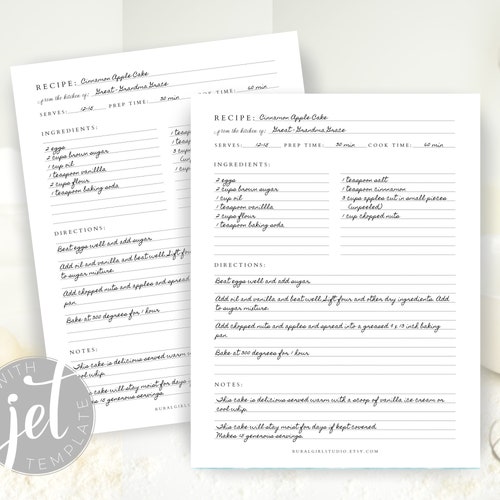 RECIPE: Cinnamon Apple Cake
...from the kitchen of: Great-Grandma Grace
SERVES: PREP TIME: 30 min 60 min
INGREDIENTS:
2 eggs
2 cups brown sugar
1 cup oil
1 teaspoon vanilla
2 cups flour
1 teaspoon baking soda
1 teaspoon
1 teaspoon
3 cups
1 cup
DIRECTIONS:
Beat eggs well and add sugar.
Add oil and vanilla and beat well. Sift four
to sugar mixture.
Add chopped nuts and apples and spread
pan.
Bake at 300 degrees for 1 hour
NOTES:
This cake is delicious served warm
cool whip.
This cake will stay moist for days
generous servings.
RURALGIRLSTUDIO
WITH
jet
TEMPLATE
RECIPE: Cinnamon Apple Cake
...from the kitchen of: Great-Grandma Grace
SERVES: PREP TIME: 30 min COOK TIME: 60 min
INGREDIENTS:
2 eggs
2 cups brown sugar
1 cup oil
1 teaspoon vanilla
2 cups flour
1 teaspoon baking soda
1 teaspoon salt
1 teaspoon cinnamon
3 cups apples cut in small pieces
(unpeeled)
1 cup chopped nuts
DIRECTIONS:
Beat eggs well and add sugar.
Add oil and vanilla and beat well. Sift four and other dry ingredients. Add
to sugar mixture.
Add chopped nuts and apples and spread into a greased 9 x 13 inch baking
pan.
Bake at 300 degrees for 1 hour
NOTES:
This cake is delicious served warm with a scoop of vanilla ice cream or
cool whip.
This cake will stay moist for days if kept covered.
Makes generous servings.
RURALGIRLSTUDIO.ETSY.COM